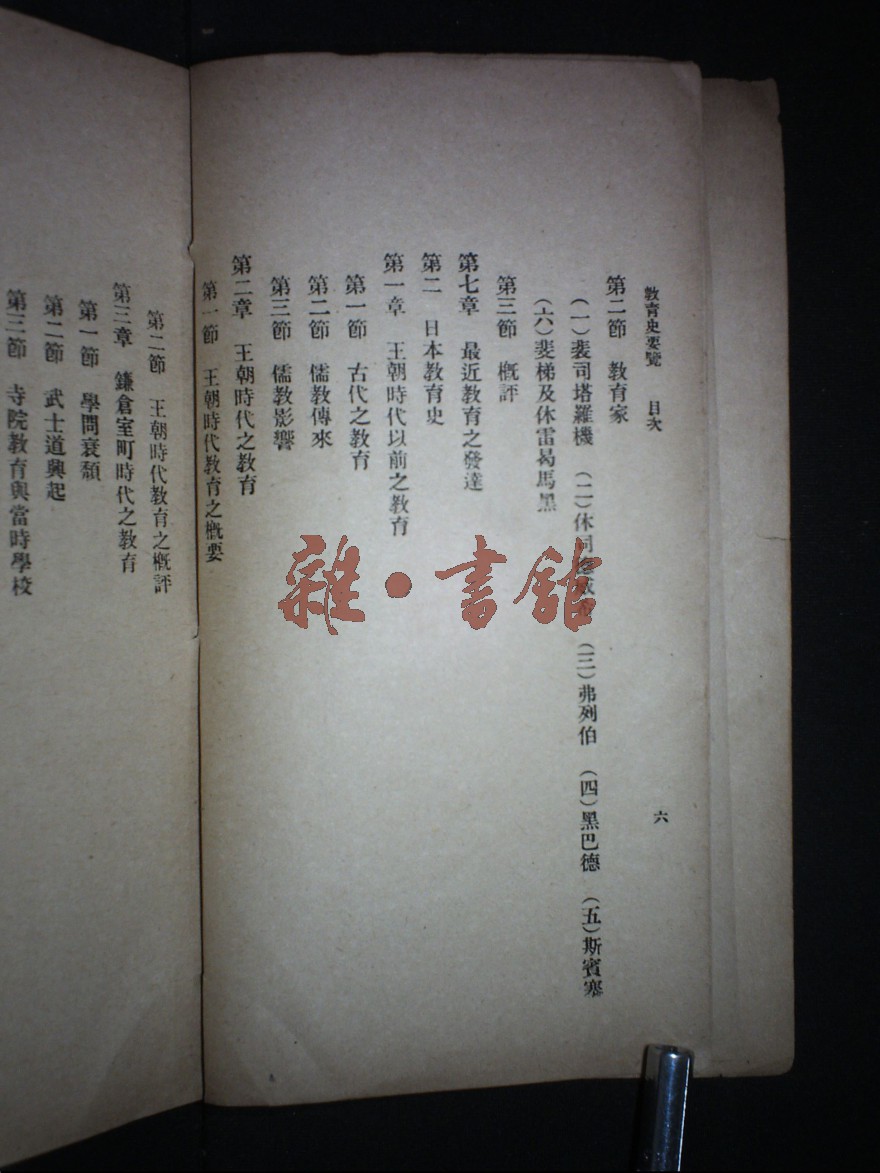 教育史要覽 目次
六
第二節 教育家
(一)裴司塔羅機 (二)休 (三)弗列伯 (四)黑巴德 (五)斯賓塞
(六)斐梯及休雷曷馬黑
第三節 概評
第七章 最近教育之發達
第二 日本教育史
第一章 王朝時代以前之教育
第一節 古代之教育
第二節 儒教傳來
第三節 儒教影響
第二章 王朝時代之教育
第一節 王朝時代教育之概要
第二節 王朝時代教育之概評
第三章 鎌倉室町時代之教育
第一節 學問衰頹
第二節 武士道興起
第三節 寺院教育與當時學校
雜·書館